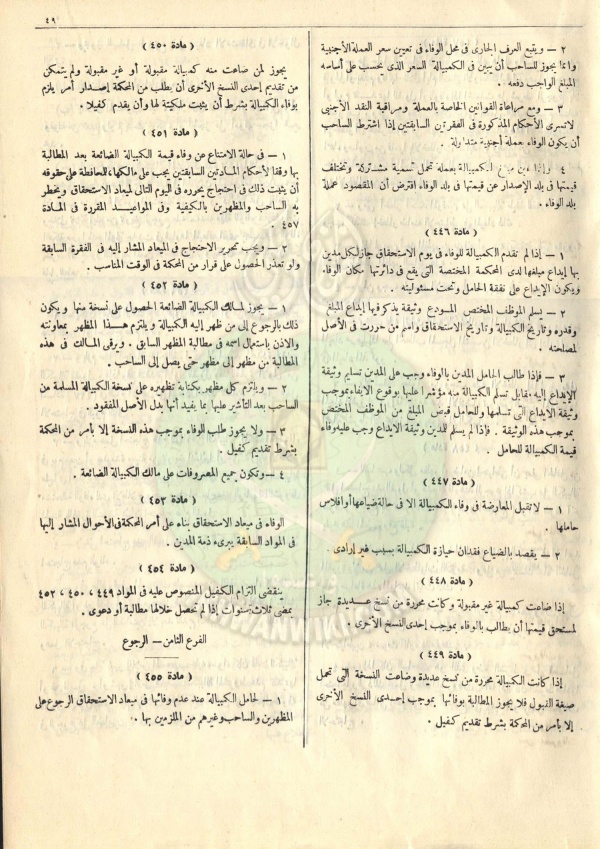 ٤٩
٢ — ويتبع العرف الجارى فى محل الوفاء فى تعيين سعر العملة الأجنبية
وانما يجوز للساحب أن يبين فى الكمبيالة السعر الذى يحسب على أساسه
المبلغ الواجب دفعه .
٣ — ومع مراعاة القوانين الخاصة بالعملة ومراقبة النقد الأجنبى
لاتسرى الأحكام المذكورة فى الفقرتين السابقتين إذا اشترط الساحب
أن يكون الوفاء بعملة أجنبية متداولة .
٤ — وإذا عين مبلغ الكمبيالة بعملة تحمل تسمية مشتركة وتختلف
قيمتها فى بلد الإصدار عن قيمتها فى بلد الوفاء افترض أن المقصود عملة
بلد الوفاء .
( مادة ٤٤٦ )
١ — إذا لم تقدم الكمبيالة للوفاء فى يوم الاستحقاق جاز لكل مدين
بها إيداع مبلغها لدى المحكمة المختصة التى يقع فى دائرتها مكان الوفاء
ويكون الإيداع على نفقة الحامل وتحت مسئوليته .
٢ — يسلم الموظف المختص المسودع وثيقة يذكر فيها إيداع المبلغ
وقدره وتاريخ الكمبيالة وتاريخ الاستحقاق واسم من حررت فى الأصل
لمصلحته .
٣ — فإذا طالب الحامل المدين بالوفاء وجب على المدين تسليم وثيقة
الإيداع إليه مقابل تسلم الكمبيالة منه مؤشرا عليها بوقوع الايفاء بموجب
وثيقة الايداع التى تسلمها وللحامل قبض المبلغ من الموظف المختص
بموجب هذه الوثيقة . فإذا لم يسلم المدين وثيقة الايداع وجب عليه وفاء
قيمة الكمبيالة للحامل .
( مادة ٤٤٧ )
١ — لاتقبل المعارضة فى وفاء الكمبيالة الا فى حالة ضياعها أو افلاس
حاملها .
٢ — يقصد بالضياع فقدان حيازة الكمبيالة بسبب غير إرادى .
( مادة ٤٤٨ )
إذا ضاعت كمبيالة غير مقبولة وكانت محررة من نسخ عديدة جاز
لمستحق قيمتها أن يطالب بالوفاء بموجب إحدى النسخ الأخرى .
( مادة ٤٤٩ )
إذا كانت الكمبيالة محررة من نسخ عديدة وضاعت النسخة التى تحمل
صيغة القبول فلا يجوز المطالبة بوفائها بموجب إحدى النسخ الأخرى
إلا بأمر من المحكمة بشرط تقديم كفيل .
( مادة ٤٥٠ )
يجوز لمن ضاعت منه كمبيالة مقبولة أو غير مقبولة ولم يتمكن
من تقديم إحدى النسخ الأخرى أن يطلب من المحكمة إصدار أمر يلزم
بوفاء الكمبيالة بشرط أن يثبت ملكيته لها وأن يقدم كفيلا .
( مادة ٤٥١ )
١ — فى حالة الامتناع عن وفاء قيمة الكمبيالة الضائعة بعد المطالبة
بها وفقا لأحكام المادتين السابقتين يجب على مالكها للمحافظة على حقوقه
أن يثبت ذلك فى احتجاج يحرره فى اليوم التالى لميعاد الاستحقاق ويخطر
به الساحب والمظهرين بالكيفية وفى المواعيد المقررة فى المادة
٤٥٧ .
٢ — ويجب تحرير الاحتجاج فى الميعاد المشار إليه فى الفقرة السابقة
ولو تعذر الحصول على قرار من المحكة فى الوقت المناسب .
( مادة ٤٥٢ )
١ — يجوز لمالك الكمبيالة الضائعة الحصول على نسخة منها ويكون
ذلك بالرجوع إلى من ظهر إليه الكمبيالة ويلتزم هذا المظهر بمعاونته
والاذن باستعمال اسمه فى مطالبة المظهر السابق . ويرقى المالك فى هذه
المطالبة من مظهر إلى مظهر حتى يصل إلى الساحب .
٢ — ويلتزم كل مظهر بكتابة تظهيره على نسخة الكمبيالة المسلمة من
الساحب بعد التأشير عليها بما يفيد أنها بدل الأصل المفقود .
٣ — ولا يجوز طلب الوفاء بموجب هذه النسخة إلا بأمر من المحكمة
بشرط تقديم كفيل .
٤ — وتكون جميع المصروفات على مالك الكمبيالة الضائعة .
( مادة ٤٥٣ )
الوفاء فى ميعاد الاستحقاق بناء على أمر المحكمة فى الأحوال المشار إليها
فى المواد السابقة يبرىء ذمة المدين .
( مادة ٤٥٤ )
ينقضى التزام الكفيل المنصوص عليه فى المواد ٤٤٩ ، ٤٥٠ ، ٤٥٢
بمضى ثلاث سنوات إذا لم تحصل خلالها مطالبة أو دعوى .
الفرع الثامن — الرجوع
( مادة ٤٥٥ )
١ — لحامل الكمبيالة عند عدم وفائها فى ميعاد الاستحقاق الرجوع على
المظهرين والساحب وغيرهم من الملزمين بها .